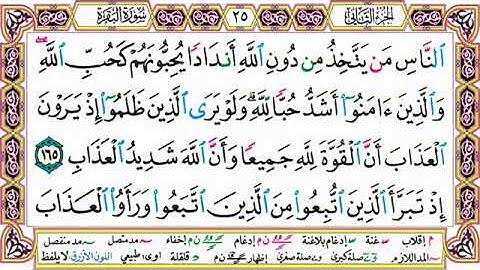 الجزء الثاني ٢٥ سورة البقرة
ٱلنَّاسِ مَن يَتَّخِذُ مِن دُونِ ٱللَّهِ أَندَادًا يُحِبُّونَهُمْ كَحُبِّ ٱللَّهِ
وَٱلَّذِينَ ءَامَنُوٓا۟ أَشَدُّ حُبًّا لِّلَّهِ ۗ وَلَوْ يَرَى ٱلَّذِينَ ظَلَمُوٓا۟ إِذْ يَرَوْنَ
ٱلْعَذَابَ أَنَّ ٱلْقُوَّةَ لِلَّهِ جَمِيعًا وَأَنَّ ٱللَّهَ شَدِيدُ ٱلْعَذَابِ ١٦٥
إِذْ تَبَرَّأَ ٱلَّذِينَ ٱتُّبِعُوا۟ مِنَ ٱلَّذِينَ ٱتَّبَعُوا۟ وَرَأَوُا۟ ٱلْعَذَابَ
م إقلاب غنة إدغام بلاغنة ن م إدغام ن م إخفاء مد متصل مد منفصل
المد اللازم صلة كبرى صلة صغرى إظهار ن م قلقلة اوى: طبيعي اللون الأزرق لا يلفظ